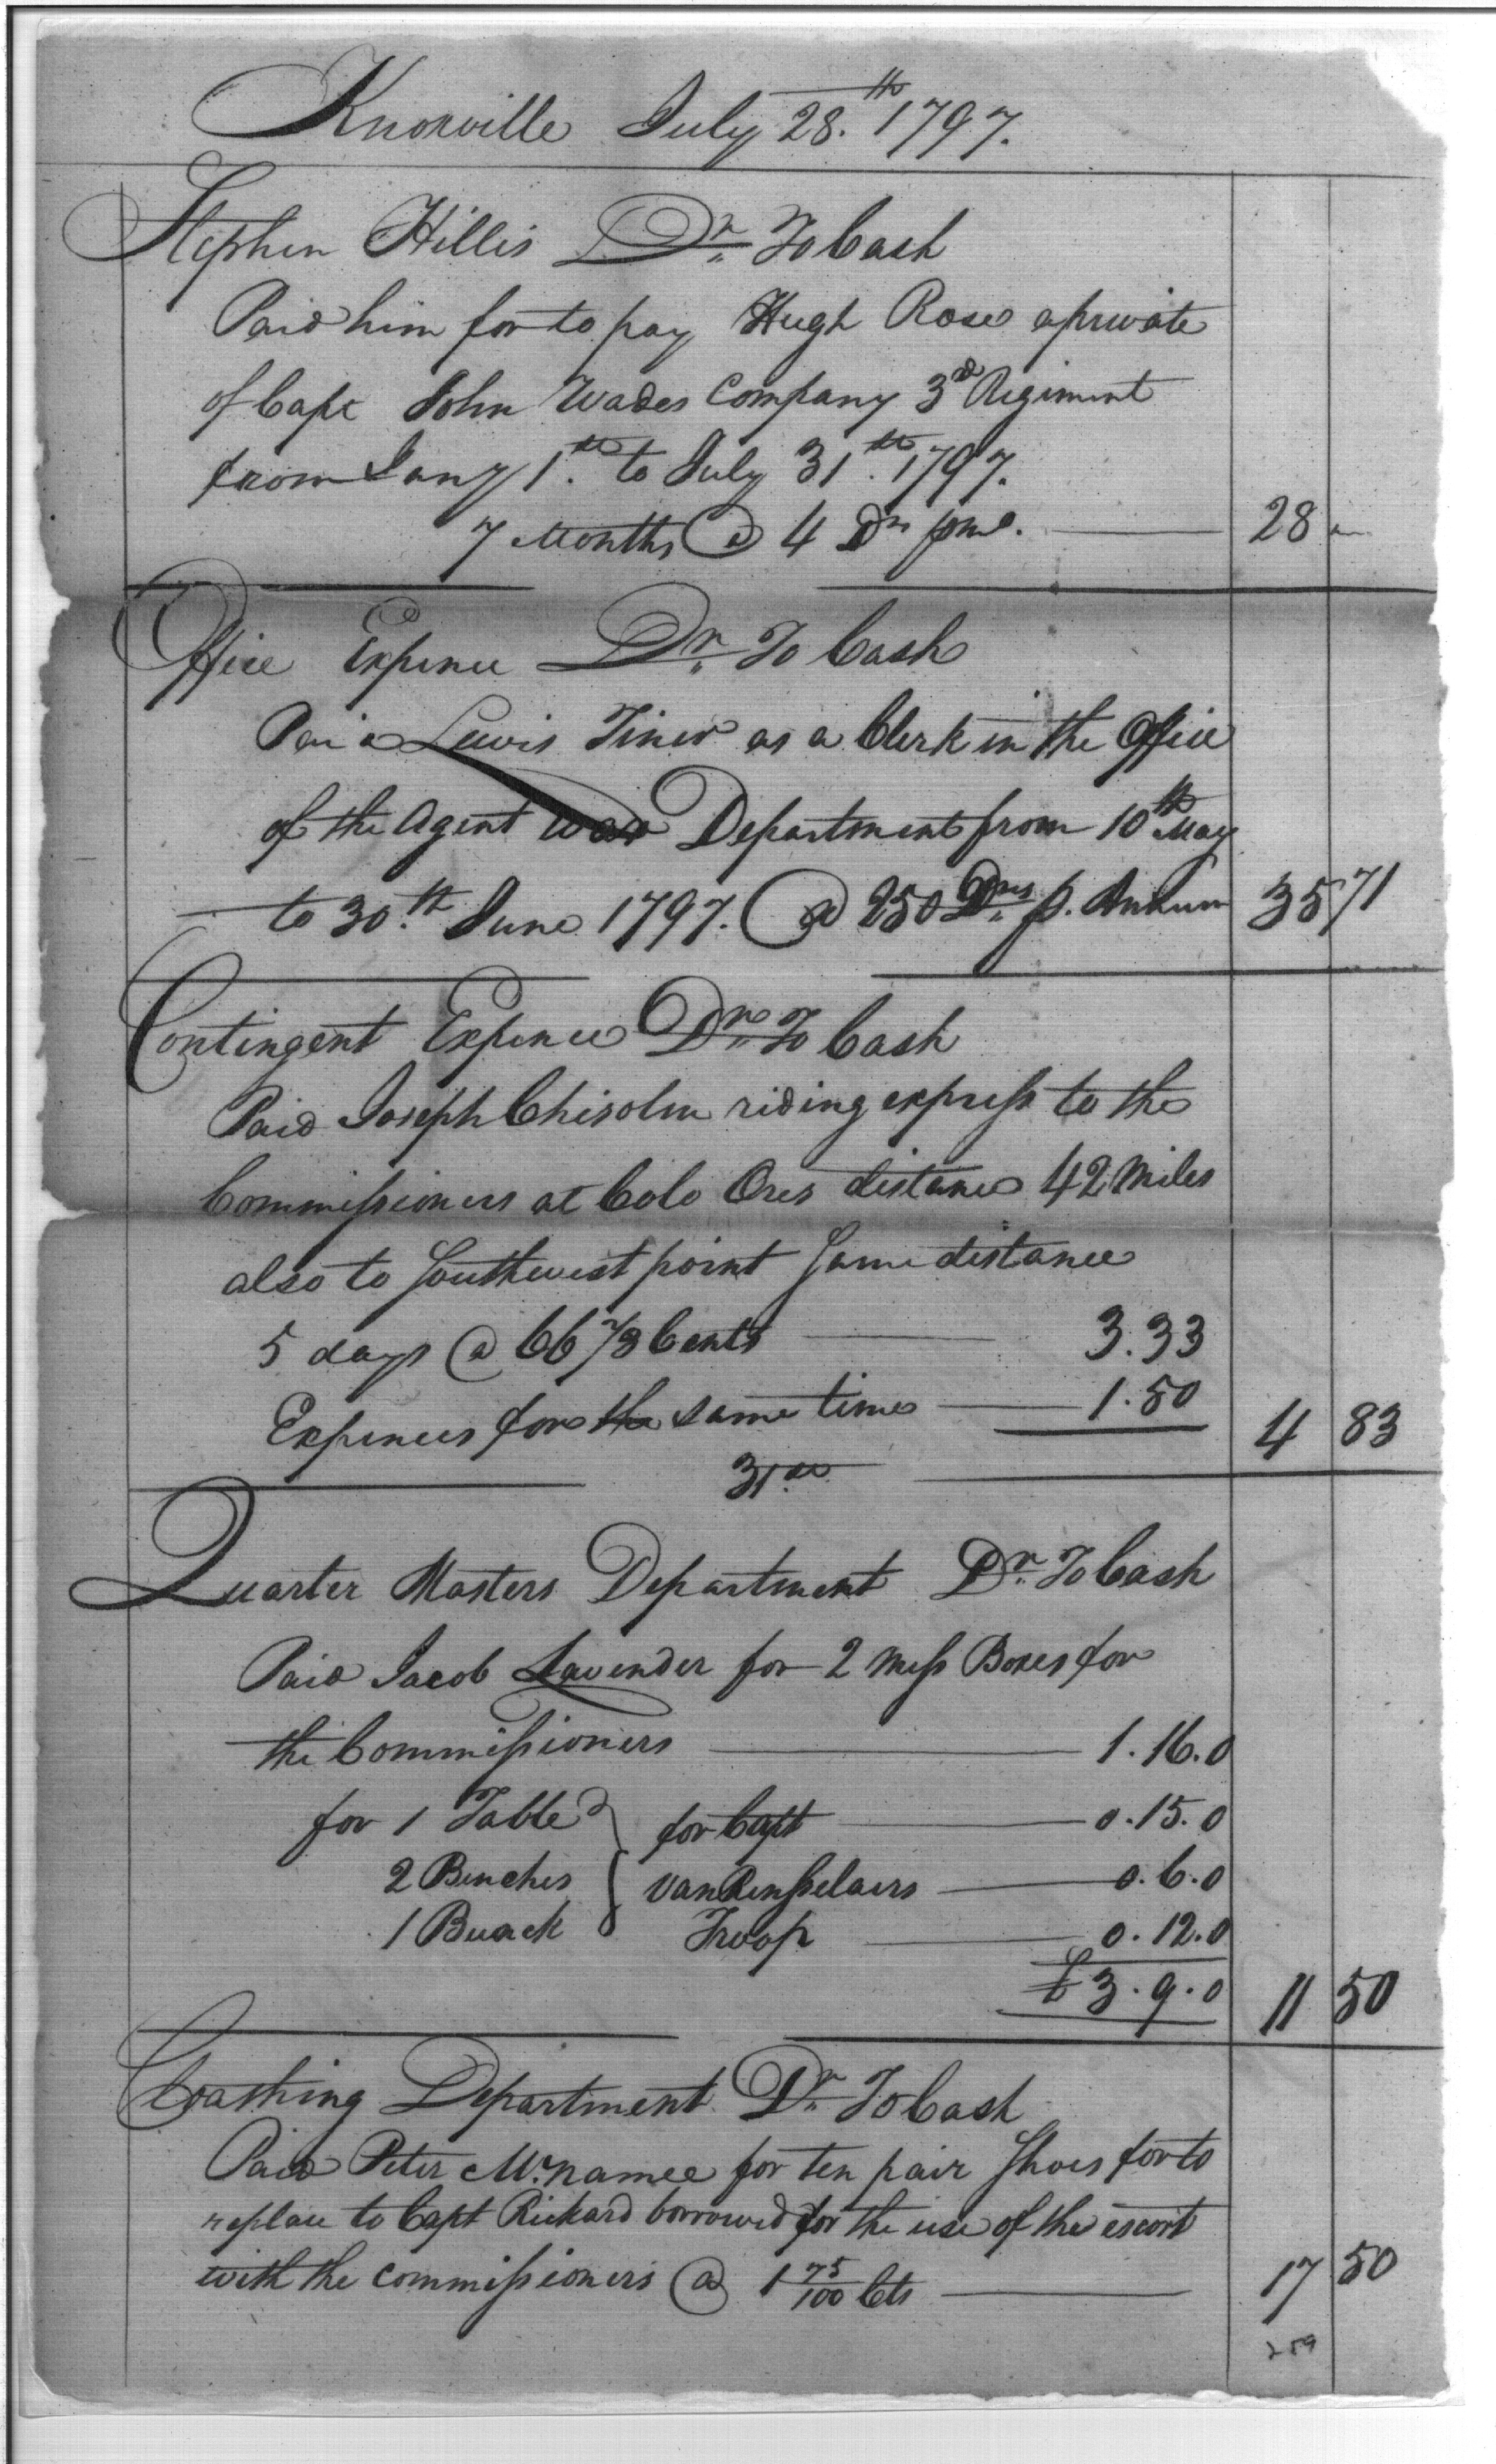 Knoxville July 28.th 1797.
Stephen Hillis Dr. To Cash
Paid him for to pay Hugh Rose a private
of Capt John Wades Company 3rd Regiment
from Jany 1.st to July 31.st 1797.
7 Months @ 4 Drs pm. 28 "
Office Expence Dr. To Cash
Paid Lewis Tiner as a Clerk in the Office
of the Agent War Department from 10th May
to 30.th June 1797. @ 250 Drs. p. Annum 35 71
Contingent Expence Dr. To Cash
Paid Joseph Chisolm riding express to the
Commissioners at Colo Ores distance 42 Miles
also to Southwest point Same distance
5 days @ 66 2/3 Cents 3.33
Expences for the same time 1.50 4 83
31st
Quarter Masters Department Dr. To Cash
Paid Jacob Lavender for 2 Mess Boxes for
the Commissioners 1.16.0
for 1 Table } for Capt 0.15.0
2 Benches } VanRensselaers 0.6.0
1 Troop 0.12.0
£3.9.0 11 50
Cloathing Department Dr. To Cash
Paid Peter Mc.namee for ten pair Shoes for to
replace to Capt Rickard borrowed for the use of the escort
with the commissioners @ 1 75/100 Cts 17 50
259